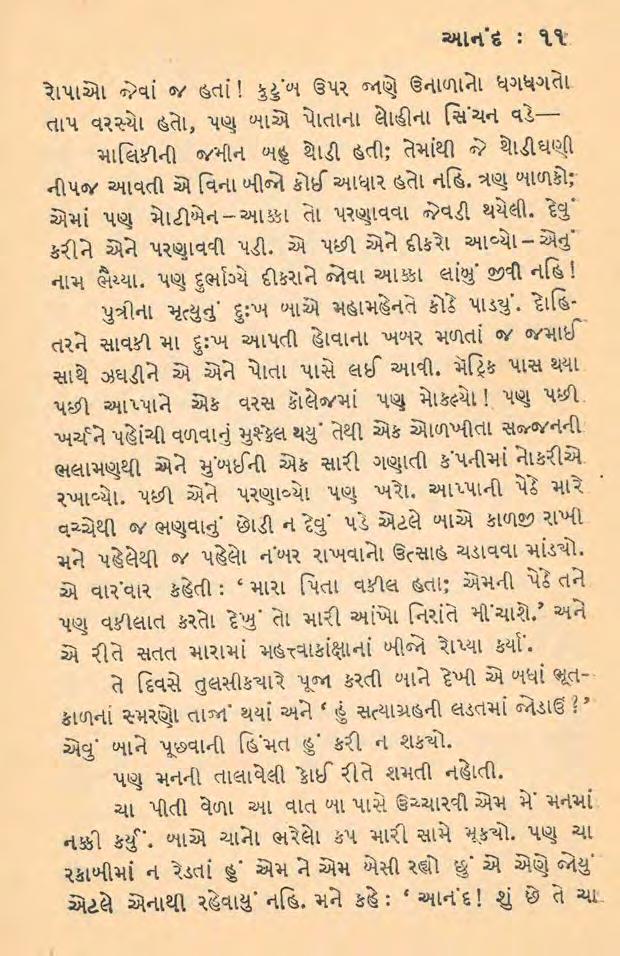 આનંદ : ૧૧
રોપાઓ જેવાં જ હતાં! કુટુંબ ઉપર જાણે ઉનાળાનો ધગધગતો
તાપ વરસ્યો હતો, પણ બાએ પોતાના લોહીના સિંચન વડે—
માલિકીની જમીન બહુ થોડી હતી; તેમાંથી જે થોડીઘણી
નીપજ આવતી એ વિના બીજો કોઈ આધાર હતો નહિ. ત્રણ બાળકો;
એમાં પણ મોટીબેન–આક્કા તો પરણાવવા જેવડી થયેલી. દેવું
કરીને એને પરણાવવી પડી. એ પછી એને દીકરો આવ્યો – એનું
નામ ભૈય્યા. પણ દુર્ભાગ્યે દીકરાને જોવા આક્કા લાંબું જીવી નહિ!
પુત્રીના મૃત્યુનું દુઃખ બાએ મહામહેનતે કોઠે પાડ્યું. દોહિ-
તરને સાવકી મા દુઃખ આપતી હોવાના ખબર મળતાં જ જમાઈ
સાથે ઝઘડીને એ એને પોતા પાસે લઈ આવી. મૅટ્રિક પાસ થયા
પછી આપ્પાને એક વરસ કૉલેજમાં પણ મોકલ્યો! પણ પછી
ખર્ચને પહોંચી વળવાનું મુશ્કેલ થયું તેથી એક ઓળખીતા સજ્જનની
ભલામણથી એને મુંબઈની એક સારી ગણાતી કંપનીમાં નોકરીએ
રખાવ્યો. પછી એને પરણાવ્યો પણ ખરો. આપ્પાની પેઠે મારે
વચ્ચેથી જ ભણવાનું છોડી ન દેવું પડે એટલે બાએ કાળજી રાખી
મને પહેલેથી જ પહેલો નંબર રાખવાનો ઉત્સાહ ચડાવવા માંડ્યો.
એ વારંવાર કહેતી : ‘મારા પિતા વકીલ હતા; એમની પેઠે તને
પણ વકીલાત કરતો દેખું તો મારી આંખો નિરાંતે મીંચાશે.’ અને
એ રીતે સતત મારામાં મહત્ત્વાકાંક્ષાનાં બીજો રોપ્યા કર્યાં.
તે દિવસે તુલસીક્યારે પૂજા કરતી બાને દેખી એ બધાં ભૂત-
કાળનાં સ્મરણો તાજાં થયાં અને ‘હું સત્યાગ્રહની લડતમાં જોડાઉં?’
એવું બાને પૂછવાની હિંમત હું કરી ન શક્યો.
પણ મનની તાલાવેલી કોઈ રીતે શમતી નહોતી.
ચા પીતી વેળા આ વાત બા પાસે ઉચ્ચારવી એમ મેં મનમાં
નક્કી કર્યું. બાએ ચાનો ભરેલો કપ મારી સામે મૂક્યો. પણ ચા
રકાબીમાં ન રેડતાં હું એમ ને એમ બેસી રહ્યો છું એ એણે જોયું
એટલે એનાથી રહેવાયું નહિ. મને કહે : ‘આનંદ! શું છે તે ચા